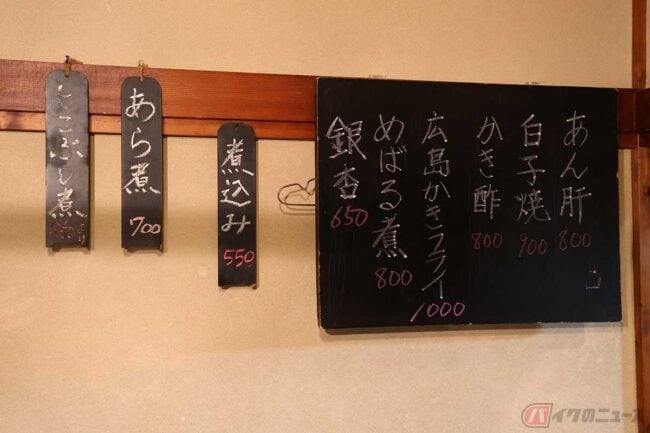 あん肝 800
白子焼 900
かき酢 800
広島かきフライ 1000
めばる煮 800
銀杏 650
煮込み 550
あら煮 700
とこぶし煮
バイクのニュース